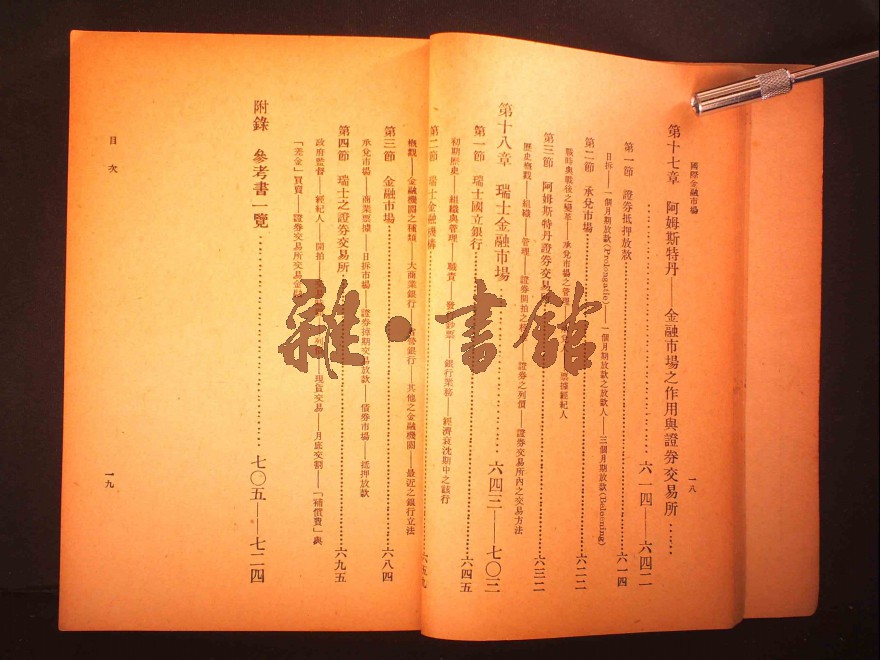 國際金融市場
一八
第十七章 阿姆斯特丹——金融市場之作用與證券交易所……
……六一四——六四二
第一節 證券抵押放款……六一四
日拆——一個月期放款(Prolongatie)——一個月期放款之放款人——三個月期放款(Beleening)
第二節 承兌市場……六二二
戰時與戰後之變革——承兌市場之管理——票據經紀人
第三節 阿姆斯特丹證券交易……六三二
歷史概觀——組織——管理——證券開拍之——證券之列價——證券交易所內之交易方法
第十八章 瑞士金融市場……六四三——七〇三
第一節 瑞士國立銀行……六四五
初期歷史——組織與管理——職責——鈔票——銀行業務——經濟衰沈期中之該行
第二節 瑞士金融機構……六五九
概觀——金融機關之種類——大商業銀行——銀行——其他之金融機關——最近之銀行立法
第三節 金融市場……六八四
承兌市場——商業票據——日拆市場——證券掉期交易放款——債券市場——抵押放款
第四節 瑞士之證券交易所……六九五
政府監督——經紀人——開拍——列——現貨交易——月底交割——「補償費」與
「差金」買賣——證券交易所交易金融
附錄 參考書一覽……七〇五——七二四
目次
一九
雜·書館